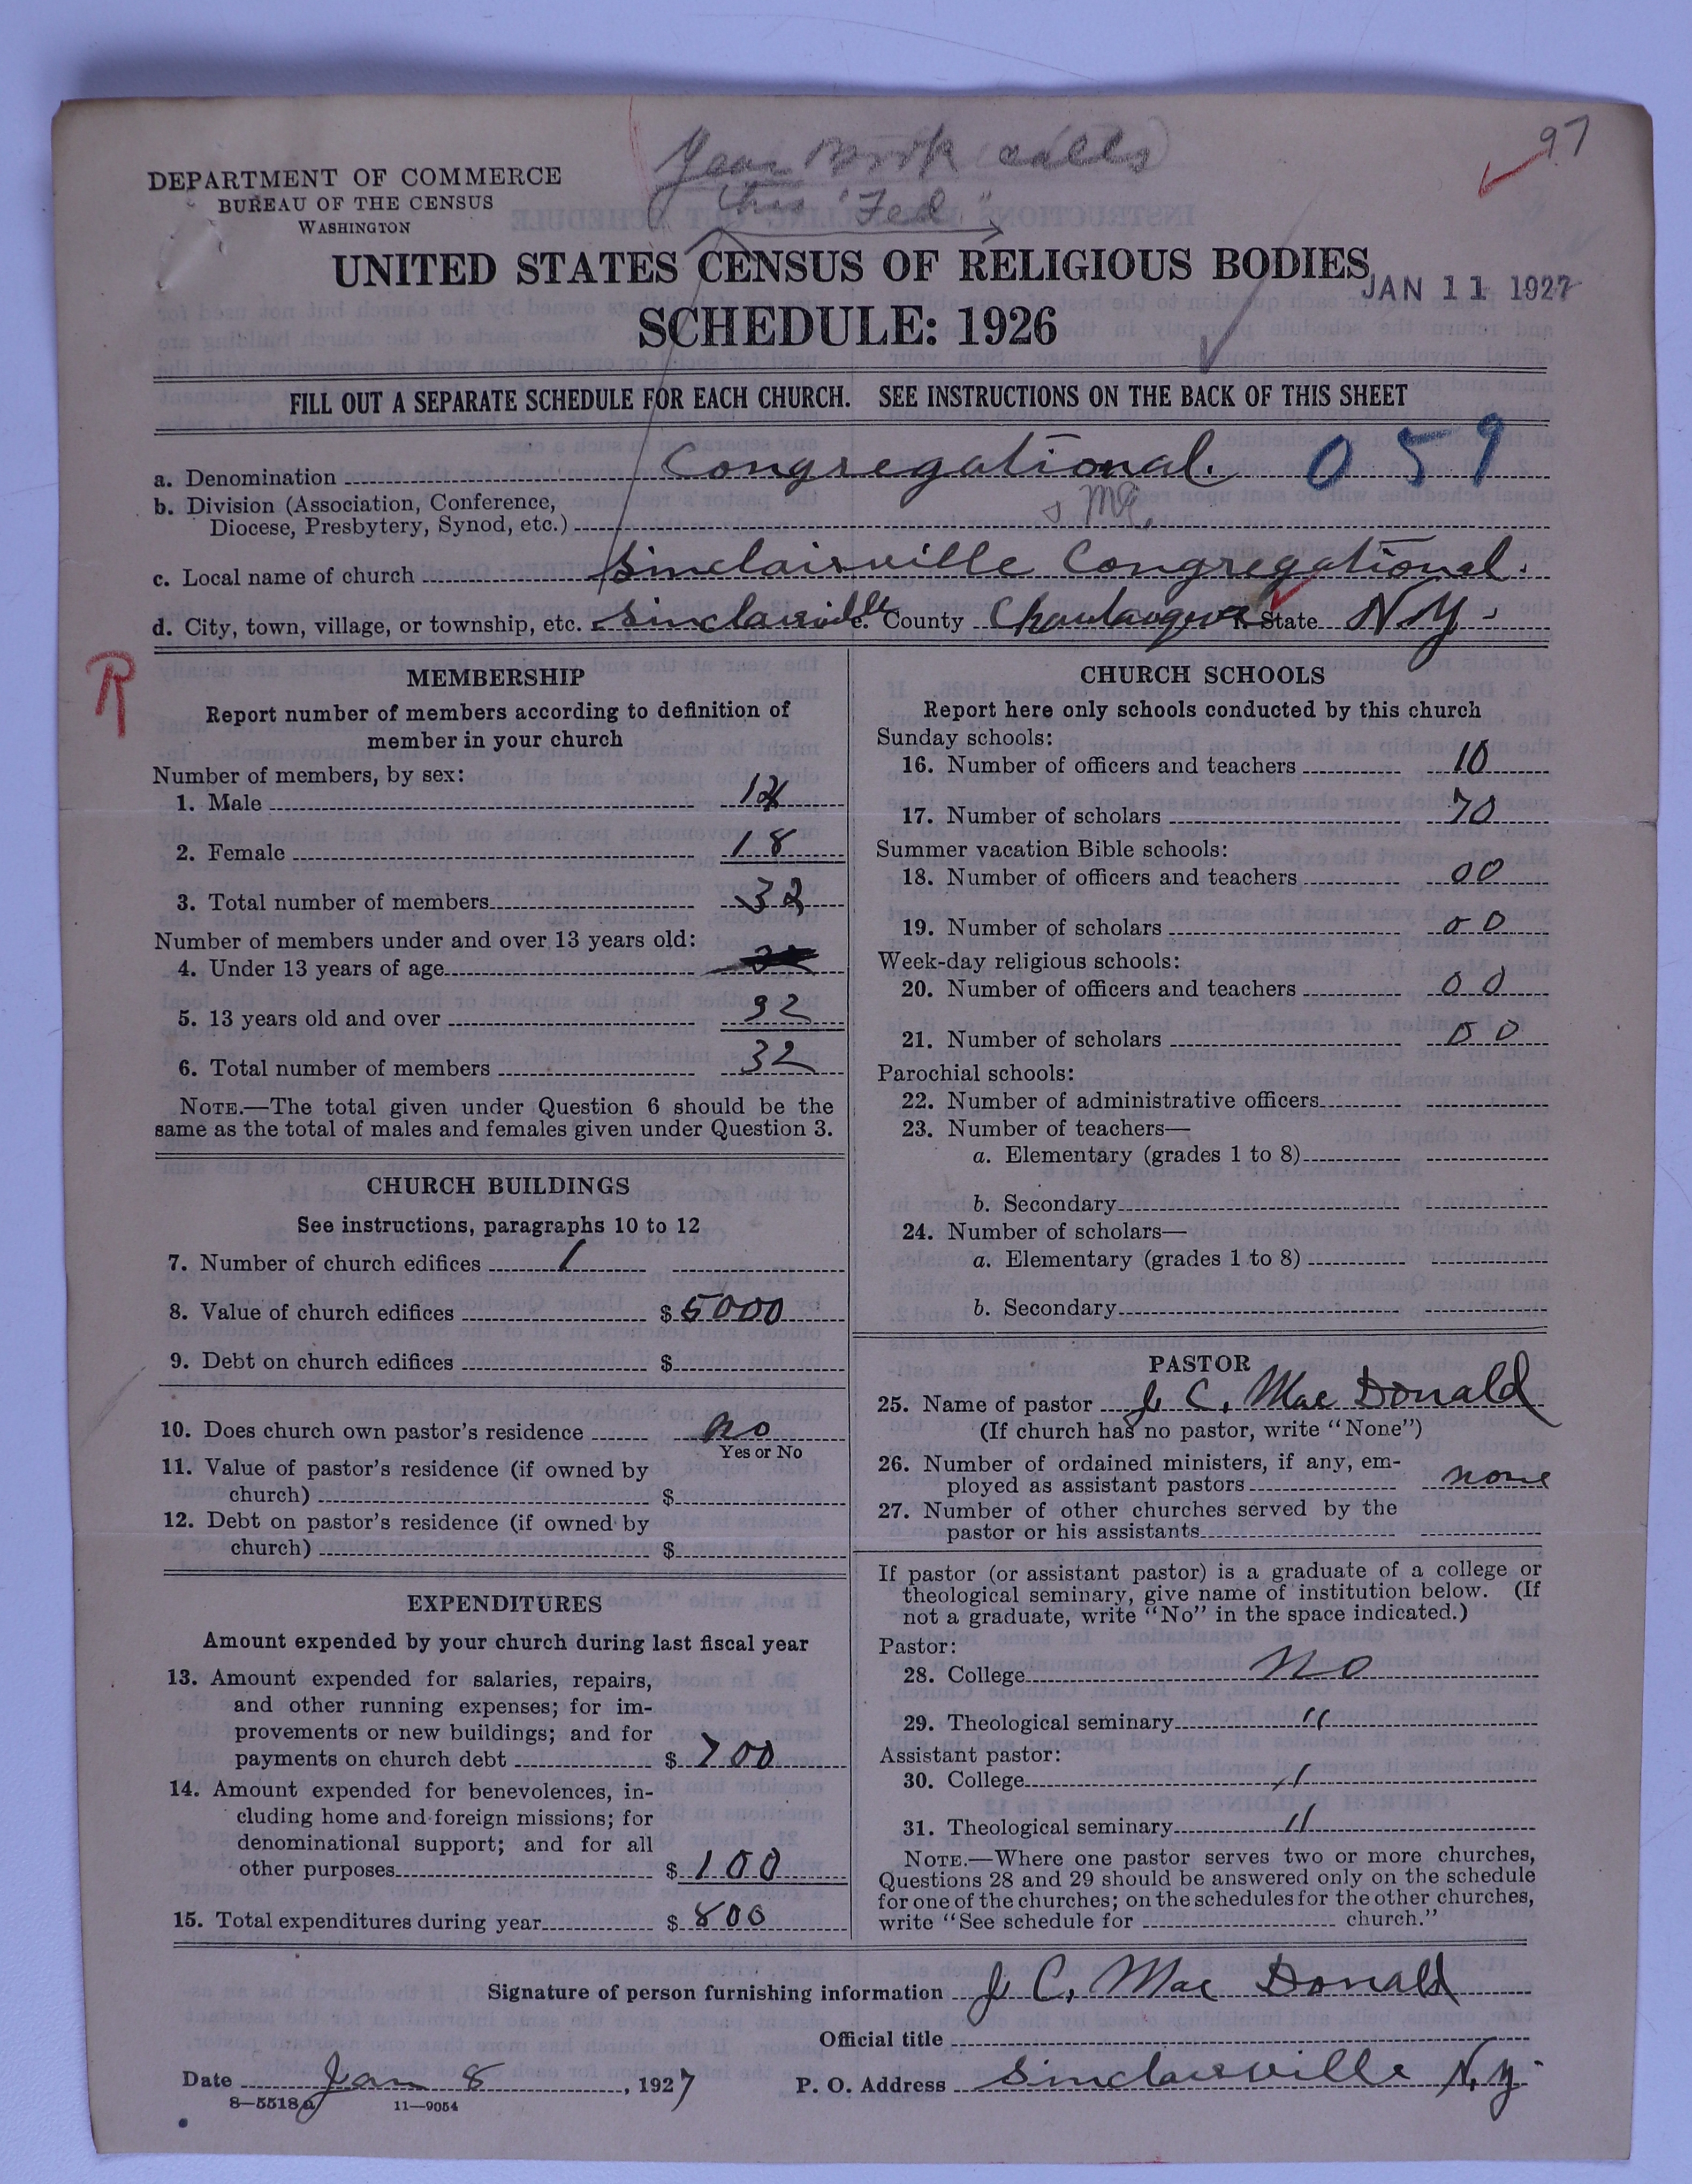 97
Year Book calls
this "Fed."
DEPARTMENT OF COMMERCE
BUREAU OF THE CENSUS
WASHINGTON
UNITED STATES CENSUS OF RELIGIOUS BODIES
JAN 11 1927
SCHEDULE: 1926
FILL OUT A SEPARATE SCHEDULE FOR EACH CHURCH. SEE INSTRUCTIONS ON THE BACK OF THIS SHEET
a. Denomination Congregational. 059
b. Division (Association, Conference,
Diocese, Presbytery, Synod, etc.)
c. Local name of church Sinclairville Congregational.
d. City, town, village, or township, etc. Sinclairville e. County Chautauqua f. State N.Y.
R
MEMBERSHIP
Report number of members according to definition of
member in your church
Number of members, by sex:
1. Male
2. Female 18
3. Total number of members 32
Number of members under and over 13 years old:
4. Under 13 years of age
5. 13 years old and over 32
6. Total number of members 32
NOTE.—The total given under Question 6 should be the
same as the total of males and females given under Question 3.
CHURCH BUILDINGS
See instructions, paragraphs 10 to 12
7. Number of church edifices 1
8. Value of church edifices $5000
9. Debt on church edifices $
10. Does church own pastor's residence no
Yes or No
11. Value of pastor's residence (if owned by
church) $
12. Debt on pastor's residence (if owned by
church) $
EXPENDITURES
Amount expended by your church during last fiscal year
13. Amount expended for salaries, repairs,
and other running expenses; for im-
provements or new buildings; and for
payments on church debt $700
14. Amount expended for benevolences, in-
cluding home and foreign missions; for
denominational support; and for all
other purposes $100
15. Total expenditures during year $800
CHURCH SCHOOLS
Report here only schools conducted by this church
Sunday schools:
16. Number of officers and teachers 10
17. Number of scholars 70
Summer vacation Bible schools:
18. Number of officers and teachers 00
19. Number of scholars 00
Week-day religious schools:
20. Number of officers and teachers 00
21. Number of scholars 00
Parochial schools:
22. Number of administrative officers
23. Number of teachers—
a. Elementary (grades 1 to 8)
b. Secondary
24. Number of scholars—
a. Elementary (grades 1 to 8)
b. Secondary
PASTOR
25. Name of pastor J. C. Mac Donald
(If church has no pastor, write "None")
26. Number of ordained ministers, if any, em-
ployed as assistant pastors none
27. Number of other churches served by the
pastor or his assistants
If pastor (or assistant pastor) is a graduate of a college or
theological seminary, give name of institution below. (If
not a graduate, write "No" in the space indicated.)
Pastor:
28. College No
29. Theological seminary "
Assistant pastor:
30. College "
31. Theological seminary "
NOTE.—Where one pastor serves two or more churches,
Questions 28 and 29 should be answered only on the schedule
for one of the churches; on the schedules for the other churches,
write "See schedule for church."
Signature of person furnishing information J. C. Mac Donald
Official title
Date Jan 8, 1927 P. O. Address Sinclairville N.Y.
8—5518a 11—9054